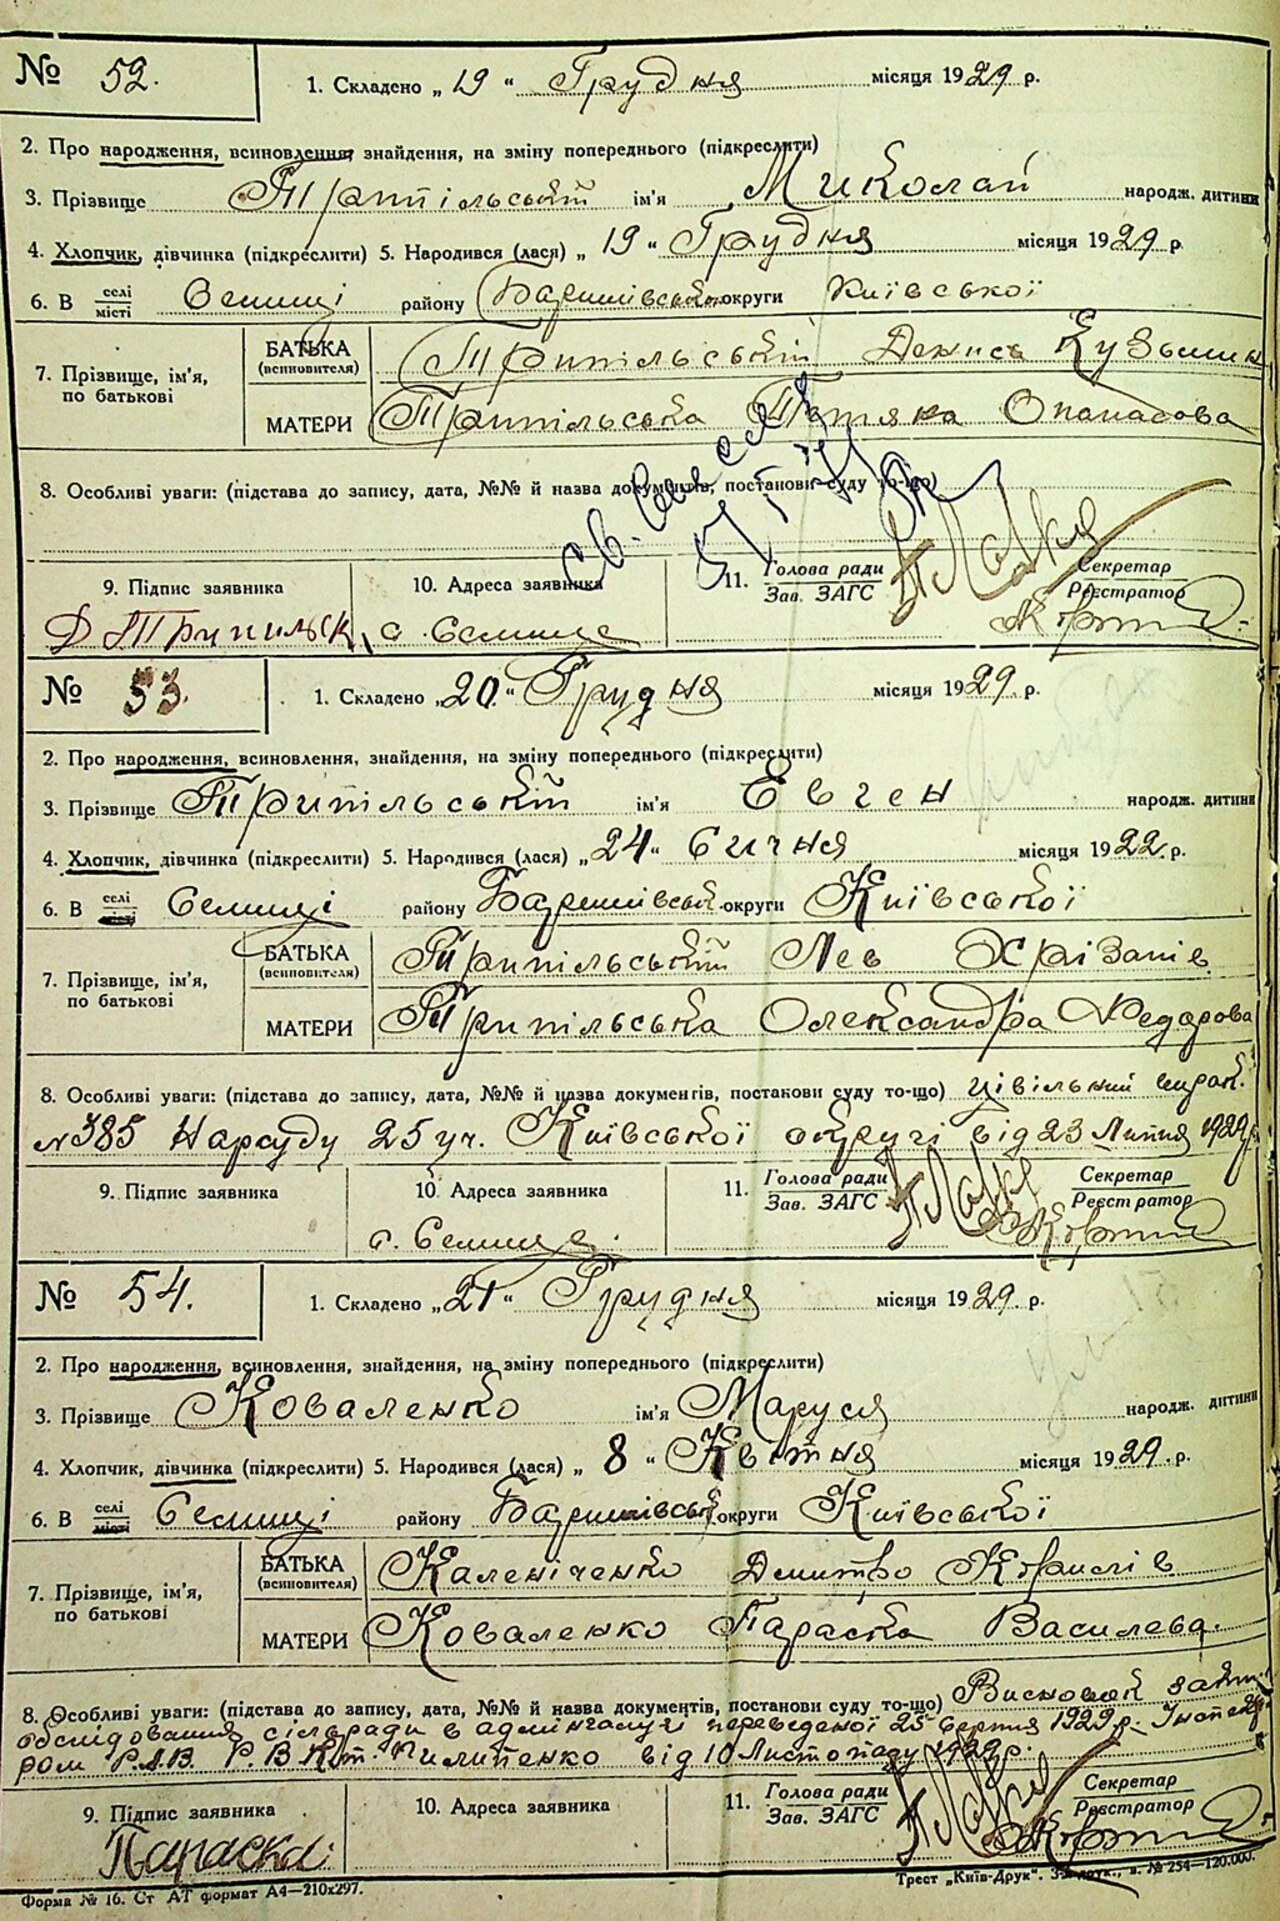 № 52. 1. Складено „19“ Грудня місяця 1929 р.
2. Про народження, всиновлення, знайдення, на зміну попереднього (підкреслити)
3. Прізвище Трипільський ім'я Миколай народж. дитини
4. Хлопчик, дівчинка (підкреслити) 5. Народився (лася) „19“ Грудня місяця 1929 р.
6. В селі місті Селищі району Баришівськ округи Київської
7. Прізвище, ім'я, по батькові
БАТЬКА (всиновителя) Трипільський Денис Кузьмин
МАТЕРИ Трипільська Тетяна Опанасова
8. Особливі уваги: (підстава до запису, дата, №№ й назва документів, постанови суду то-що)
9. Підпис заявника 10. Адреса заявника 11. Голова ради Зав. ЗАГС Секретар Реєстратор
Д Трипильск с. Селище
№ 53. 1. Складено „20“ Грудня місяця 1929. р.
2. Про народження, всиновлення, знайдення, на зміну попереднього (підкреслити)
3. Прізвище Трипільський ім'я Евген народж. дитини
4. Хлопчик, дівчинка (підкреслити) 5. Народився (лася) „24“ Січня місяця 1922. р.
6. В селі місті Селищі району Баришівськ округи Київської
7. Прізвище, ім'я, по батькові
БАТЬКА (всиновителя) Трипільський Лев Хрізанів
МАТЕРИ Трипільська Олександра Федорова
8. Особливі уваги: (підстава до запису, дата, №№ й назва документів, постакови суду то-що) Цівільний
№385 Нарсуду 25 уч. Київської округі від 23 Липня 1929р.
9. Підпис заявника 10. Адреса заявника 11. Голова ради Зав. ЗАГС Секретар Реєстратор
с. Селище.
№ 54. 1. Складено „21“ Грудня місяця 1929. р.
2. Про народження, всиновлення, знайдення, на зміну попереднього (підкреслити)
3. Прізвище Коваленко ім'я Маруся народж. дитини
4. Хлопчик, дівчинка (підкреслити) 5. Народився (лася) „8“ Квітня місяця 1929. р.
6. В селі місті Селищі району Баришівськ округи Київської
7. Прізвище, ім'я, по батькові
БАТЬКА (всиновителя) Каленіченко Дмитро
МАТЕРИ Коваленко Параска Василева.
8. Особливі уваги: (підстава до запису, дата, №№ й назва документів, постанови суду то-що) Висновок
обслідования сільради в переведеної 25 Серпня 1929 р.
ром Р.А.В. Пилипенко від 10 Листопаду 1929р.
9. Підпис заявника 10. Адреса заявника 11. Голова ради Зав. ЗАГС Секретар Реєстратор
Параска
Форма № 16. Ст АТ формат А4—210х297. Трест „Київ-Друк“. 3-я друк., з. № 254—120.000.